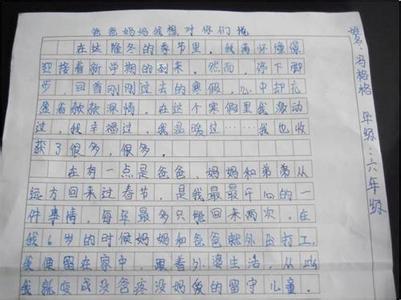 爸爸妈妈我想对你们说
在这隆冬的季节里，我满怀憧憬
迎接着新学期的到来，然而，停下脚
步，回首刚刚过去的寒假，心中却充
满着依依深情。在这个寒假里我激动
过，我幸福过，我品尝过……我也收
获了很多，很多。
在有一点是爸爸，妈妈和弟弟从
远方回来过春节，是我最最开心的一
件事情，每年最多只能回来两次。在
我6岁的时候妈妈和爸爸就外出打工，
我便留在家中，跟着外婆生活，从此
我就变成没爸疼没妈爱的留守儿童。
年级：六年级